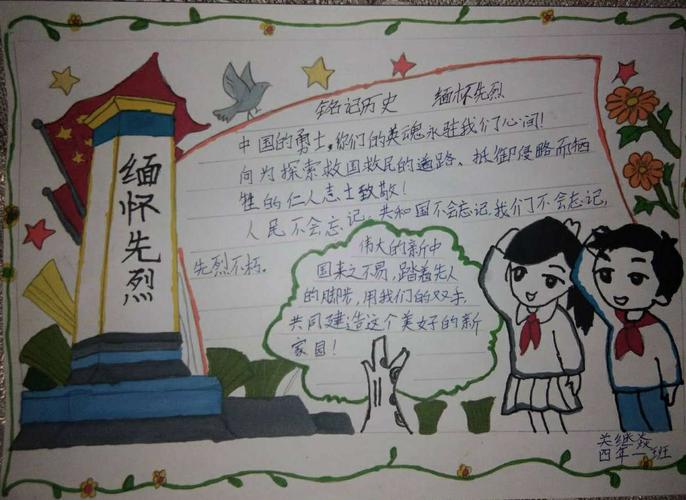 缅怀先烈
铭记历史 缅怀先烈
中国的勇士,你们的英魂永驻我们心间!
向为探索救国救民的道路、抵御侵略而牺
牲的仁人志士致敬!
人民不会忘记,共和国不会忘记,我们不会忘记,
先烈不朽.
伟大的新中
国来之不易,踏着先人
的脚步,用我们的双手,
共同建造这个美好的新
家园!
关继焱
四年一班